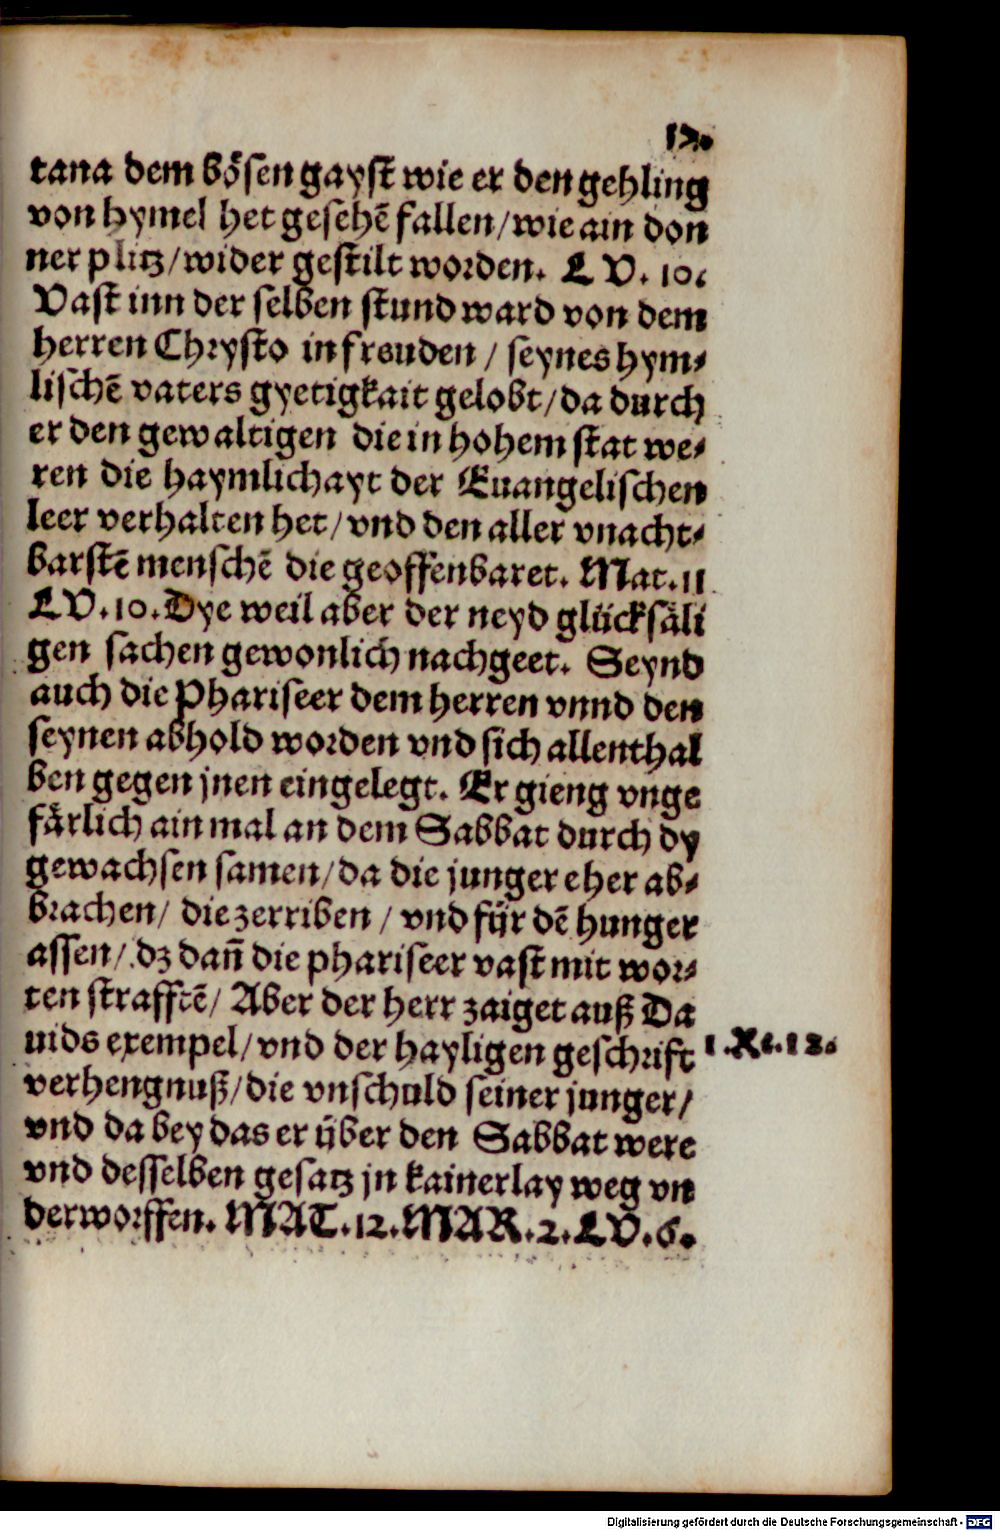 17.
tana dem bösen gayst wie er den gehling
von hymel het gesehē fallen/wie ain don
ner plitz/wider gestilt worden. LV. 10.
Vast inn der selben stund ward von dem
herren Chrysto in freuden / seynes hym⸗
lischē vaters gyetigkait gelobt/da durch
er den gewaltigen die in hohem stat we⸗
ren die haymlichayt der Euangelischen
leer verhalten het/vnd den aller vnacht⸗
barstē menschē die geoffenbaret. Mat. 11
LV. 10. Dye weil aber der neyd glücksäli
gen sachen gewonlich nachgeet. Seynd
auch die Phariseer dem herren vnnd den
seynen abhold worden vnd sich allenthal
ben gegen jnen eingelegt. Er gieng vnge
färlich ain mal an dem Sabbat durch dy
gewachsen samen/da die junger eher ab⸗
brachen/ die zerriben / vnd für dē hunger
assen/ dz dañ die phariseer vast mit wor⸗
ten strafftē/ Aber der herr zaiget auß Da
uids exempel/vnd der hayligen geschrift
1. Re. 12.
verhengnuß/die vnschuld seiner junger/
vnd da bey das er über den Sabbat were
vnd desselben gesatz jn kainerlay weg vn
derworffen. MAT. 12. MAR. 2. LV. 6.
Digitalisierung gefördert durch die Deutsche Forschungsgemeinschaft - DFG